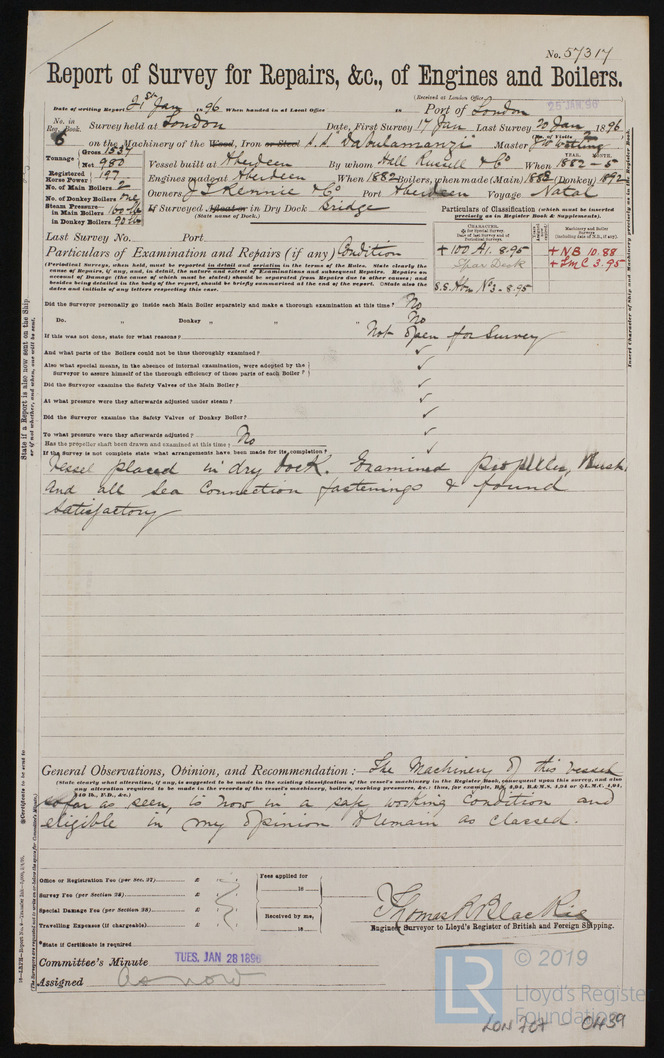 No. 57317
Report of Survey for Repairs, &c., of Engines and Boilers.
(Received at London Office
25 JAN. 96
Date of writing Report 21st Jan 1896 When handed in at Local Office 18 Port of London
No. in Reg. Book. Survey held at London Date, First Survey 17 Jan Last Survey 20 Jan 1896
(No. of Visits 2
6 on the Machinery of the Wood, Iron or Steel S.S. Dabulamanzi Master
Tonnage Gross 1537
Net 980
Vessel built at Aberdeen By whom Hall Russell & Co When 1882 - 5
YEAR. MONTH.
Registered Horse Power 197
Engines made at Aberdeen When 1882 Boilers, when made (Main) 1888 (Donkey) 1892
No. of Main Boilers 2
Owners J T Rennie & Co Port Aberdeen Voyage Natal
No. of Donkey Boilers One
Steam Pressure in Main Boilers 160 lb
in Donkey Boilers 90 lb
If Surveyed Afloat or in Dry Dock Bridge
(State name of Dock.)
Particulars of Classification (which must be inserted precisely as in Register Book & Supplements).
Last Survey No. Port
CHARACTER.
Machinery and Boiler Surveys
+ 100 A1. 8.95
Spar Deck
S.S. No 3 - 8.95
+ NB 10.88
+ LMC 3.95
Particulars of Examination and Repairs (if any) Condition
(Periodical Surveys, when held, must be reported in detail and seriatim in the terms of the Rules. State clearly the
cause of Repairs, if any, and, in detail, the nature and extent of Examinations and subsequent Repairs. Repairs on
account of Damage (the cause of which must be stated) should be separated from Repairs due to other causes; and
besides being detailed in the body of the report, should be briefly summarised at the end of the report. State also the
dates and initials of any letters respecting this case.
Did the Surveyor personally go inside each Main Boiler separately and make a thorough examination at this time? No
Do. " Donkey " " " No
If this was not done, state for what reasons? Not open for Survey
And what parts of the Boilers could not be thoroughly examined? ✓
Also what special means, in the absence of internal examination, were adopted by the
Surveyor to assure himself of the thorough efficiency of those parts of each Boiler? ✓
Did the Surveyor examine the Safety Valves of the Main Boiler? ✓
At what pressure were they afterwards adjusted under steam? ✓
Did the Surveyor examine the Safety Valves of Donkey Boiler? ✓
To what pressure were they afterwards adjusted? ✓
Has the propeller shaft been drawn and examined at this time? No
If the Survey is not complete state what arrangements have been made for its completion? ✓
Vessel placed in dry dock. Examined propeller, Bush,
and all Sea Connection fastenings & found
Satisfactory
General Observations, Opinion, and Recommendation:— The Machinery of this vessel
(State clearly what alteration, if any, is suggested to be made in the existing classification of the vessel's machinery in the Register Book, consequent upon this survey, and also
any alteration required to be made in the records of the vessel's machinery, boilers, working pressures, &c.: thus, for example, B.S. 4,94, B.& M.S. 4,94 or L.M.C. 4,94,
140 lb., F.D., &c.)
so far as seen, is now in a safe working condition and
eligible in my opinion to remain as classed.
Office or Registration Fee (per Sec. 27) £
Survey Fee (per Section 28) £
Special Damage Fee (per Section 28) £
Travelling Expenses (if chargeable) £
Fees applied for
18
Received by me,
18
Thomas R Blackie
Engineer Surveyor to Lloyd's Register of British and Foreign Shipping.
*State if Certificate is required
Committee's Minute TUES. JAN 28 1896
Assigned As now
State if a Report is also now sent on the Ship
or if not whether, and when, one will be sent.
© 2019
LR
Lloyd's Register
Foundation
LON 707 - 0439